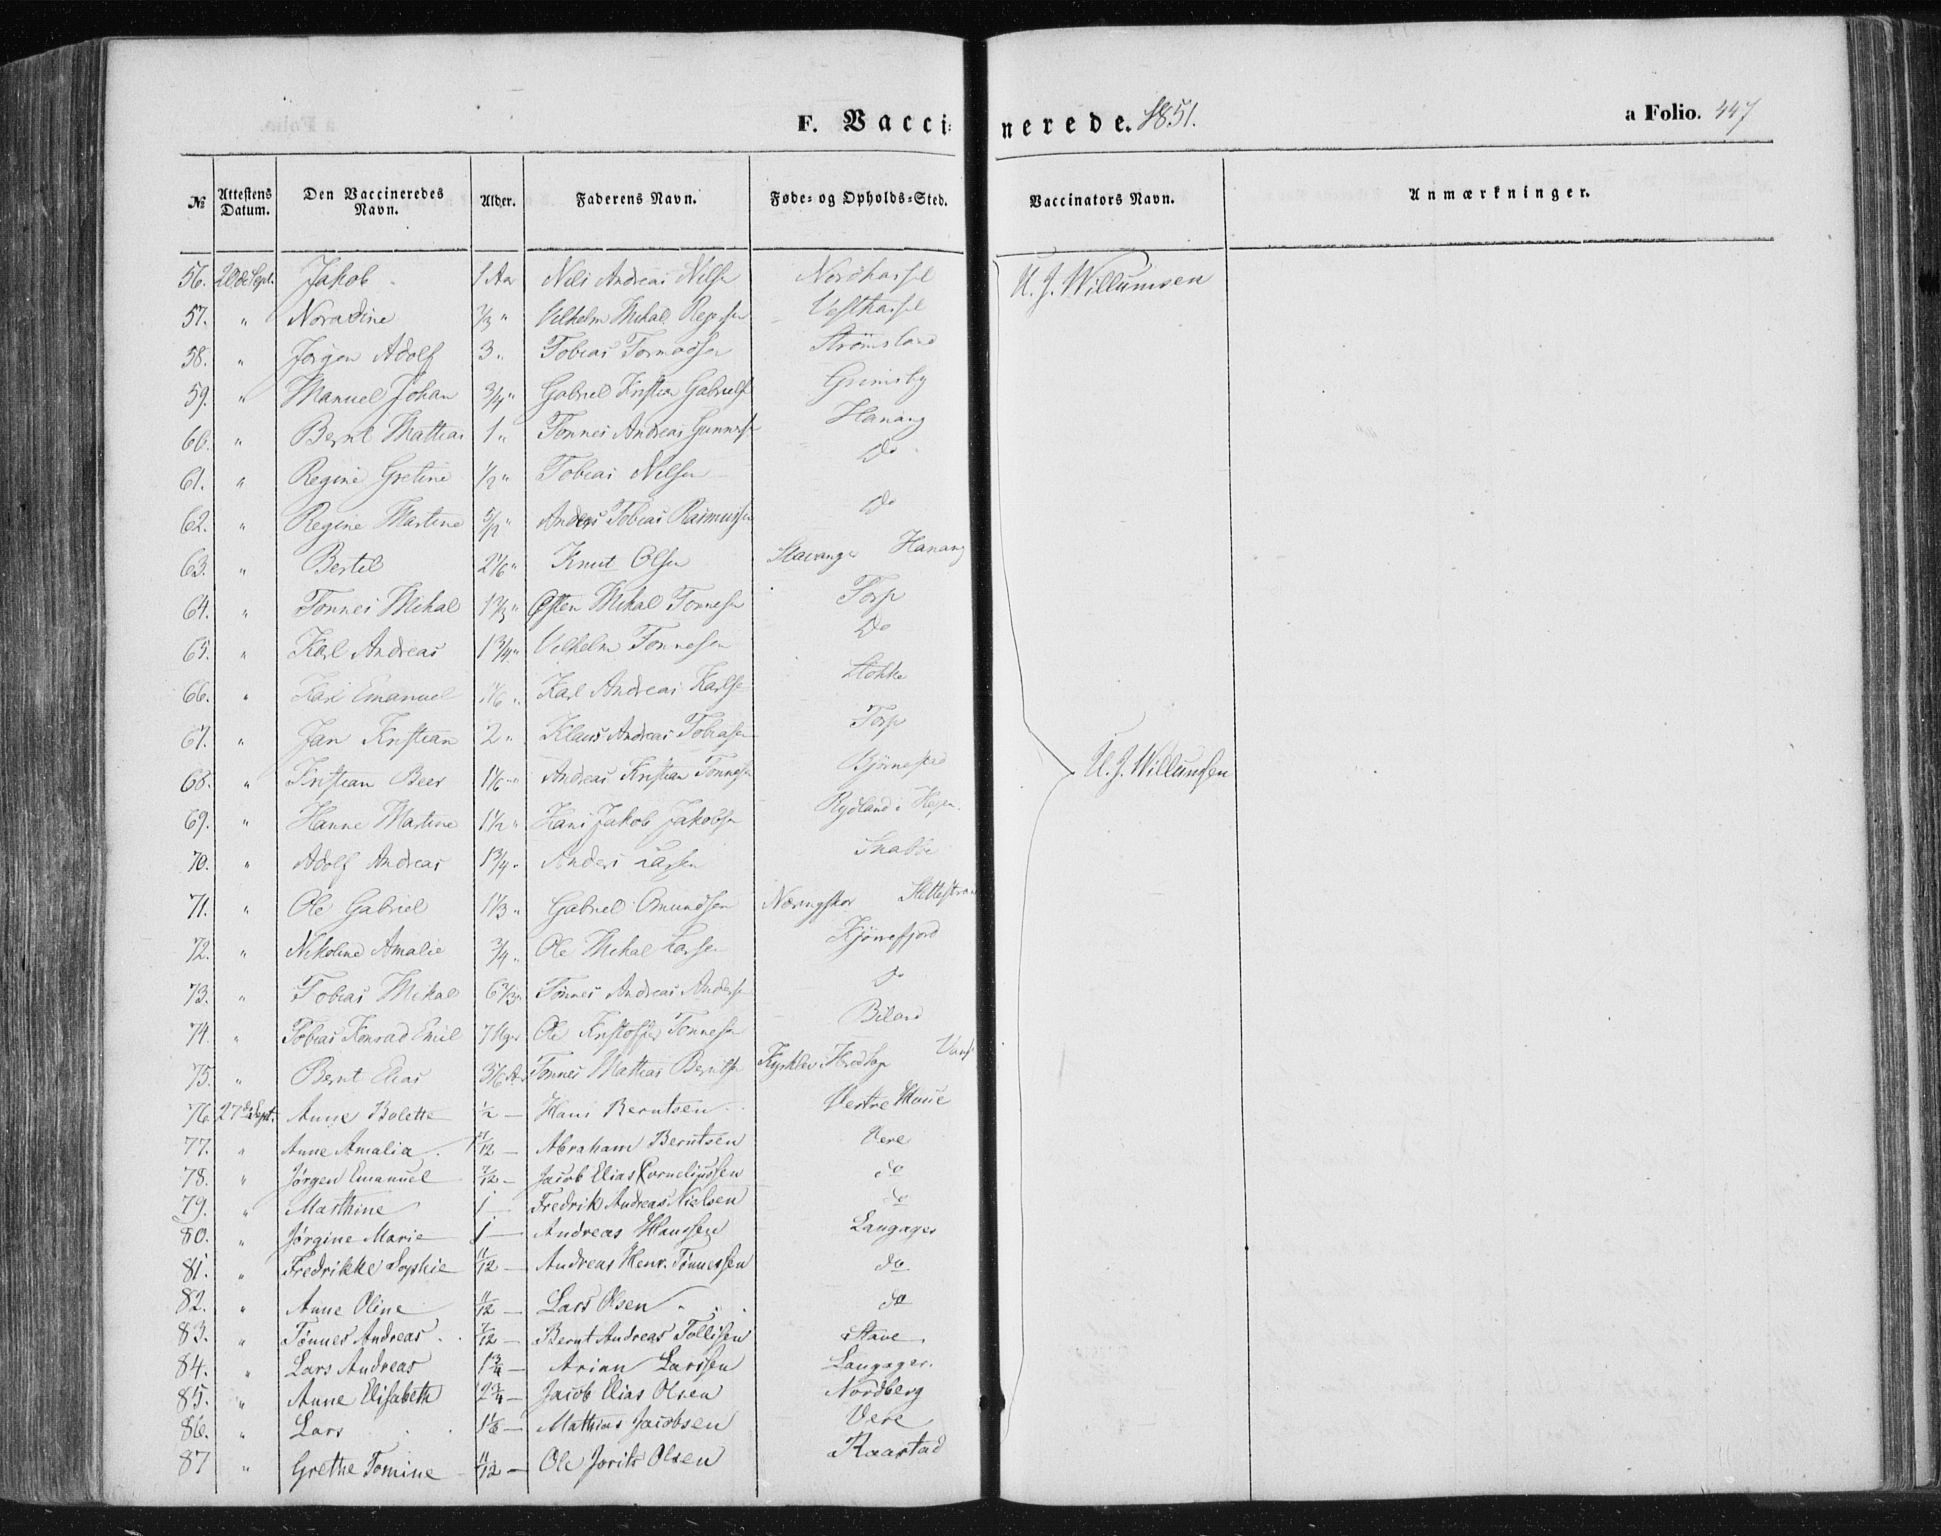 F. Vaccinerede. 1851.
a Folio. 447
№ Attestens Datum. Den Vaccineredes Navn. Alder. Faderens Navn. Føde- og Opholds-Sted. Vaccinators Navn. Anmærkninger.
56. 20de Sept. Jakob 1 Aar Nils Andreas Nilsen Nordhassel U. J. Willumsen
57. " Noradine Vilhelm Mikal Vesthassel
58. " Jørgen Adolf 3 " Tobias Strømsland
59. " Manuel Johan 3/4 " Gabriel Kristian Gabrielsen Grimsby
60. " Bernt Mattias 1 " Tønnes Andreas Gunnersen Hanang
61. " Regine Gretine 1/2 " Tobias Nilsen Do
62. " Regine Martine 5/12 " Anders Tobias Rasmussen Do
63. " Bertel 2 1/6 " Knut Olsen Stavanger Hanang
64. " Tønnes Mikal 1 2/3 " Østen Mikal Tønnesen Torp
65. " Karl Andreas 1 3/4 " Vilhelm Tønnesen Do
66. " Karl Emanuel Karl Andreas Karlsen Stokke
67. " Jan Kristian 2 " Klaus Andreas Tobiasen Torp
68. " Kristian Beer 1 1/6 " Andreas Kristian Tønnesen Bjørnestad U. J. Willumsen
69. " Hanne Martine 1 1/2 " Hans Jakob Jakobsen Rydland i
70. " Adolf Andreas 1 3/4 " Anders Larsen Snabbe
71. " Ole Gabriel 1 1/3 " Gabriel Omundsen
72. " Nikoline Amalie 3/4 " Ole Mikal Larsen Kjørrefjord
73. " Tobias Mikal 6 2/3 " Tønnes Andreas Andersen do
74. " Tobias Konrad Emil 7 Uger Ole Kristoffer Tønnesen Biland
75. " Bernt Elias 3 1/6 Aar Tønnes Mathias Berntsen
76. 27de Sept. Anne Bolette 1/2 — Hans Berntsen Vestre Hauge
77. " Anne Amalia Abraham Berntsen Vere
78. " Jørgen Emanuel 7/12 — Jacob Elias Corneliussen do
79. " Marthine 1 — Fredrik Andreas Nielsen do
80. " Jørgine Marie 1 — Andreas Hanssen Langager
81. " Fredrikke Sophie 11/12 — Andreas Henr. Tønnessen do
82. " Anne Oline 11/12 — Lars Olsen do
83. " Tønnes Andreas 7/12 — Bernt Andreas Tollisen Stave
84. " Lars Andreas 1 3/4 — Arian Larssen Langager.
85. " Anne Elisabeth 2 3/4 — Jacob Elias Olsen Nordberg
86. " Lars 1 1/6 — Mathias Jacobsen Vere
87 " Grethe Tomine 11/12 — Ole Jorits Olsen Raastad